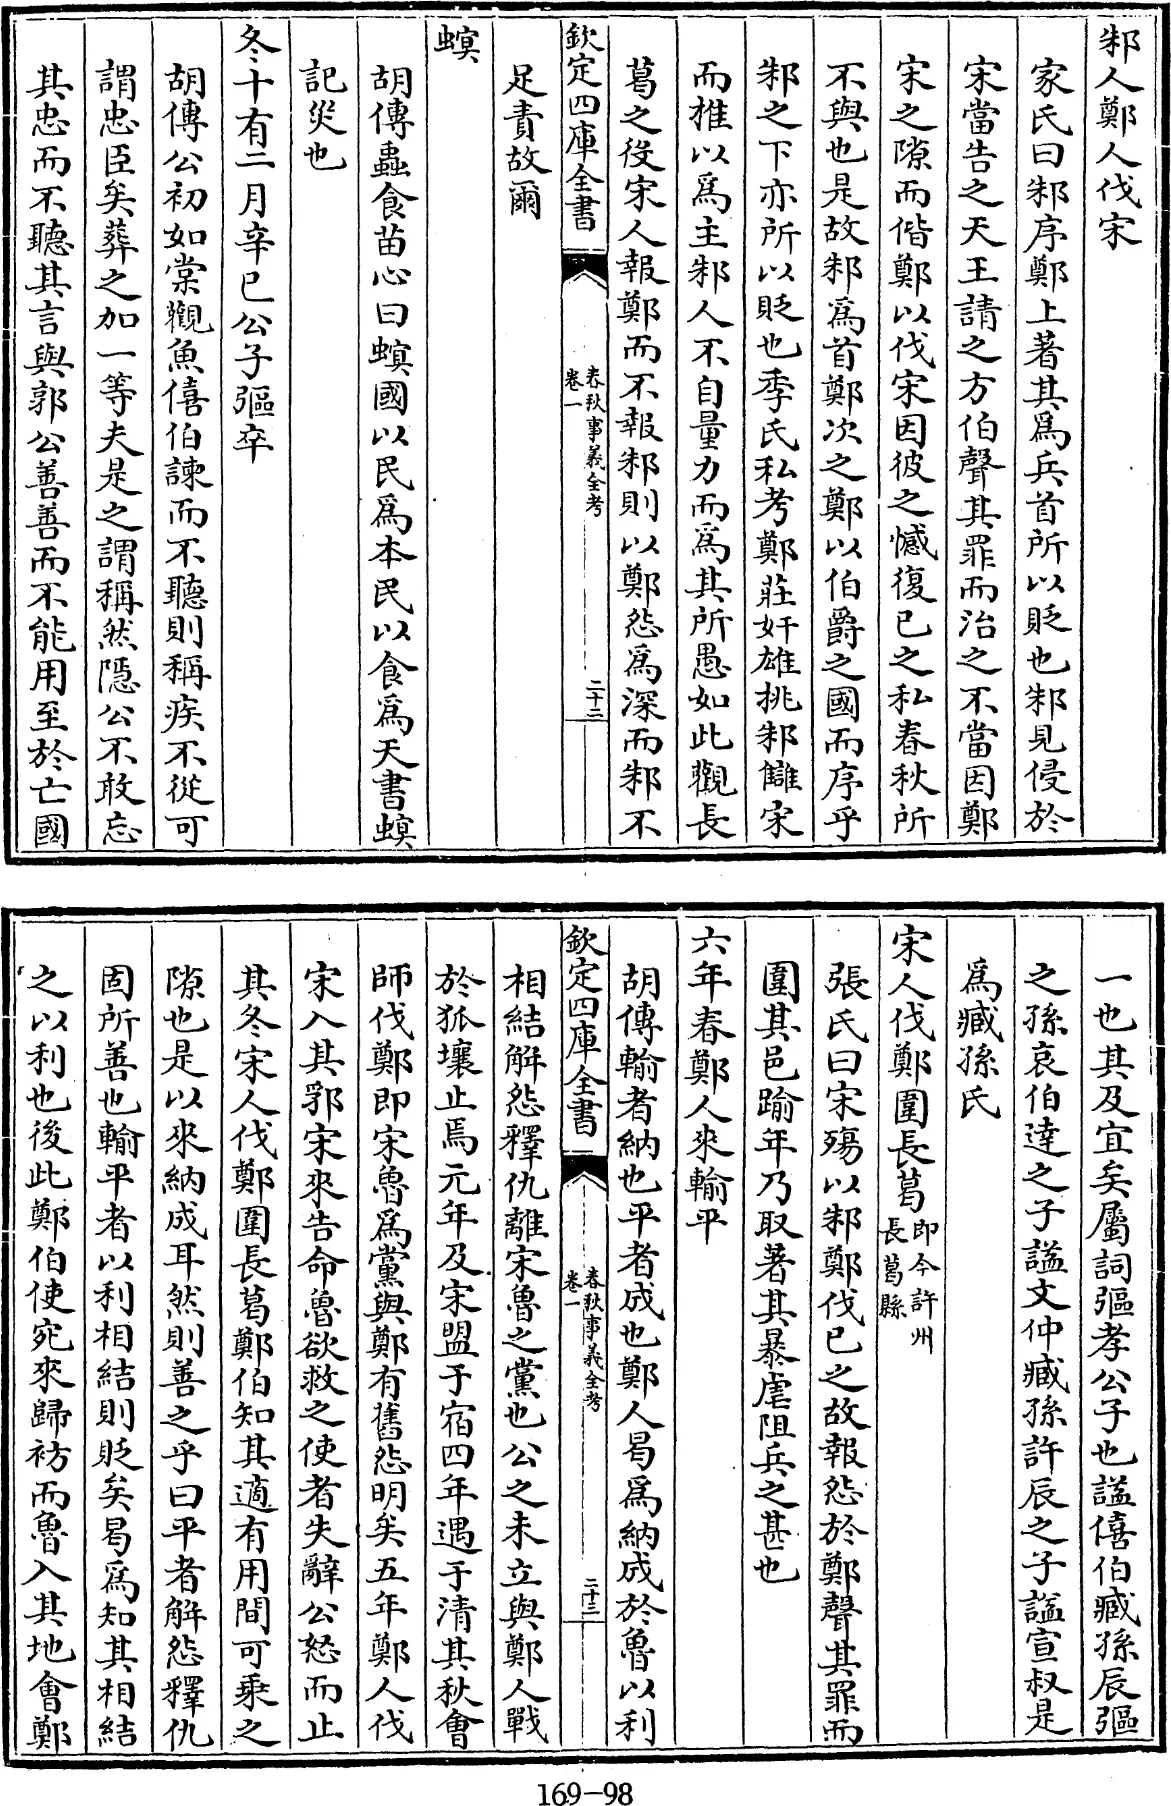 邾人鄭人伐宋
家氏曰邾序鄭上著其爲兵首所以貶也邾見侵於
宋當告之天王請之方伯聲其罪而治之不當因鄭
宋之隙而偕鄭以伐宋因彼之憾復已之私春秋所
不與也是故邾爲首鄭次之鄭以伯爵之國而序乎
邾之下亦所以貶也季氏私考鄭莊奸雄挑邾讎宋
而推以爲主邾人不自量力而爲其所愚如此觀長
葛之役宋人報鄭而不報邾則以鄭怨爲深而邾不
欽定四庫全書
春秋事義全考
卷一
二十二
足責故爾
螟
胡傳蟲食苗心曰螟國以民爲本民以食爲天書螟
記災也
冬十有二月辛巳公子彄卒
胡傳公初如棠觀魚僖伯諫而不聽則稱疾不從可
謂忠臣矣葬之加一等夫是之謂稱然隱公不敢忘
其忠而不聽其言與郭公善善而不能用至於亡國
一也其及宜矣屬詞彄孝公子也謚僖伯臧孫辰彄
之孫哀伯達之子謚文仲臧孫許辰之子謚宣叔是
爲臧孫氏
宋人伐鄭圍長葛即今許州長葛縣
張氏曰宋殤以邾鄭伐已之故報怨於鄭聲其罪而
圍其邑踰年乃取著其暴虐阻兵之甚也
六年春鄭人來輸平
胡傳輸者納也平者成也鄭人曷爲納成於魯以利
欽定四庫全書
春秋事義全考
卷一
二十三
相結解怨釋仇離宋魯之黨也公之未立與鄭人戰
於狐壤止焉元年及宋盟于宿四年遇于清其秋會
師伐鄭即宋魯爲黨與鄭有舊怨明矣五年鄭人伐
宋入其郛宋來告命魯欲救之使者失辭公怒而止
其冬宋人伐鄭圍長葛鄭伯知其適有用間可乘之
隙也是以來納成耳然則善之乎曰平者解怨釋仇
固所善也輸平者以利相結則貶矣曷爲知其相結
之以利也後此鄭伯使宛來歸祊而魯入其地會鄭
169-98